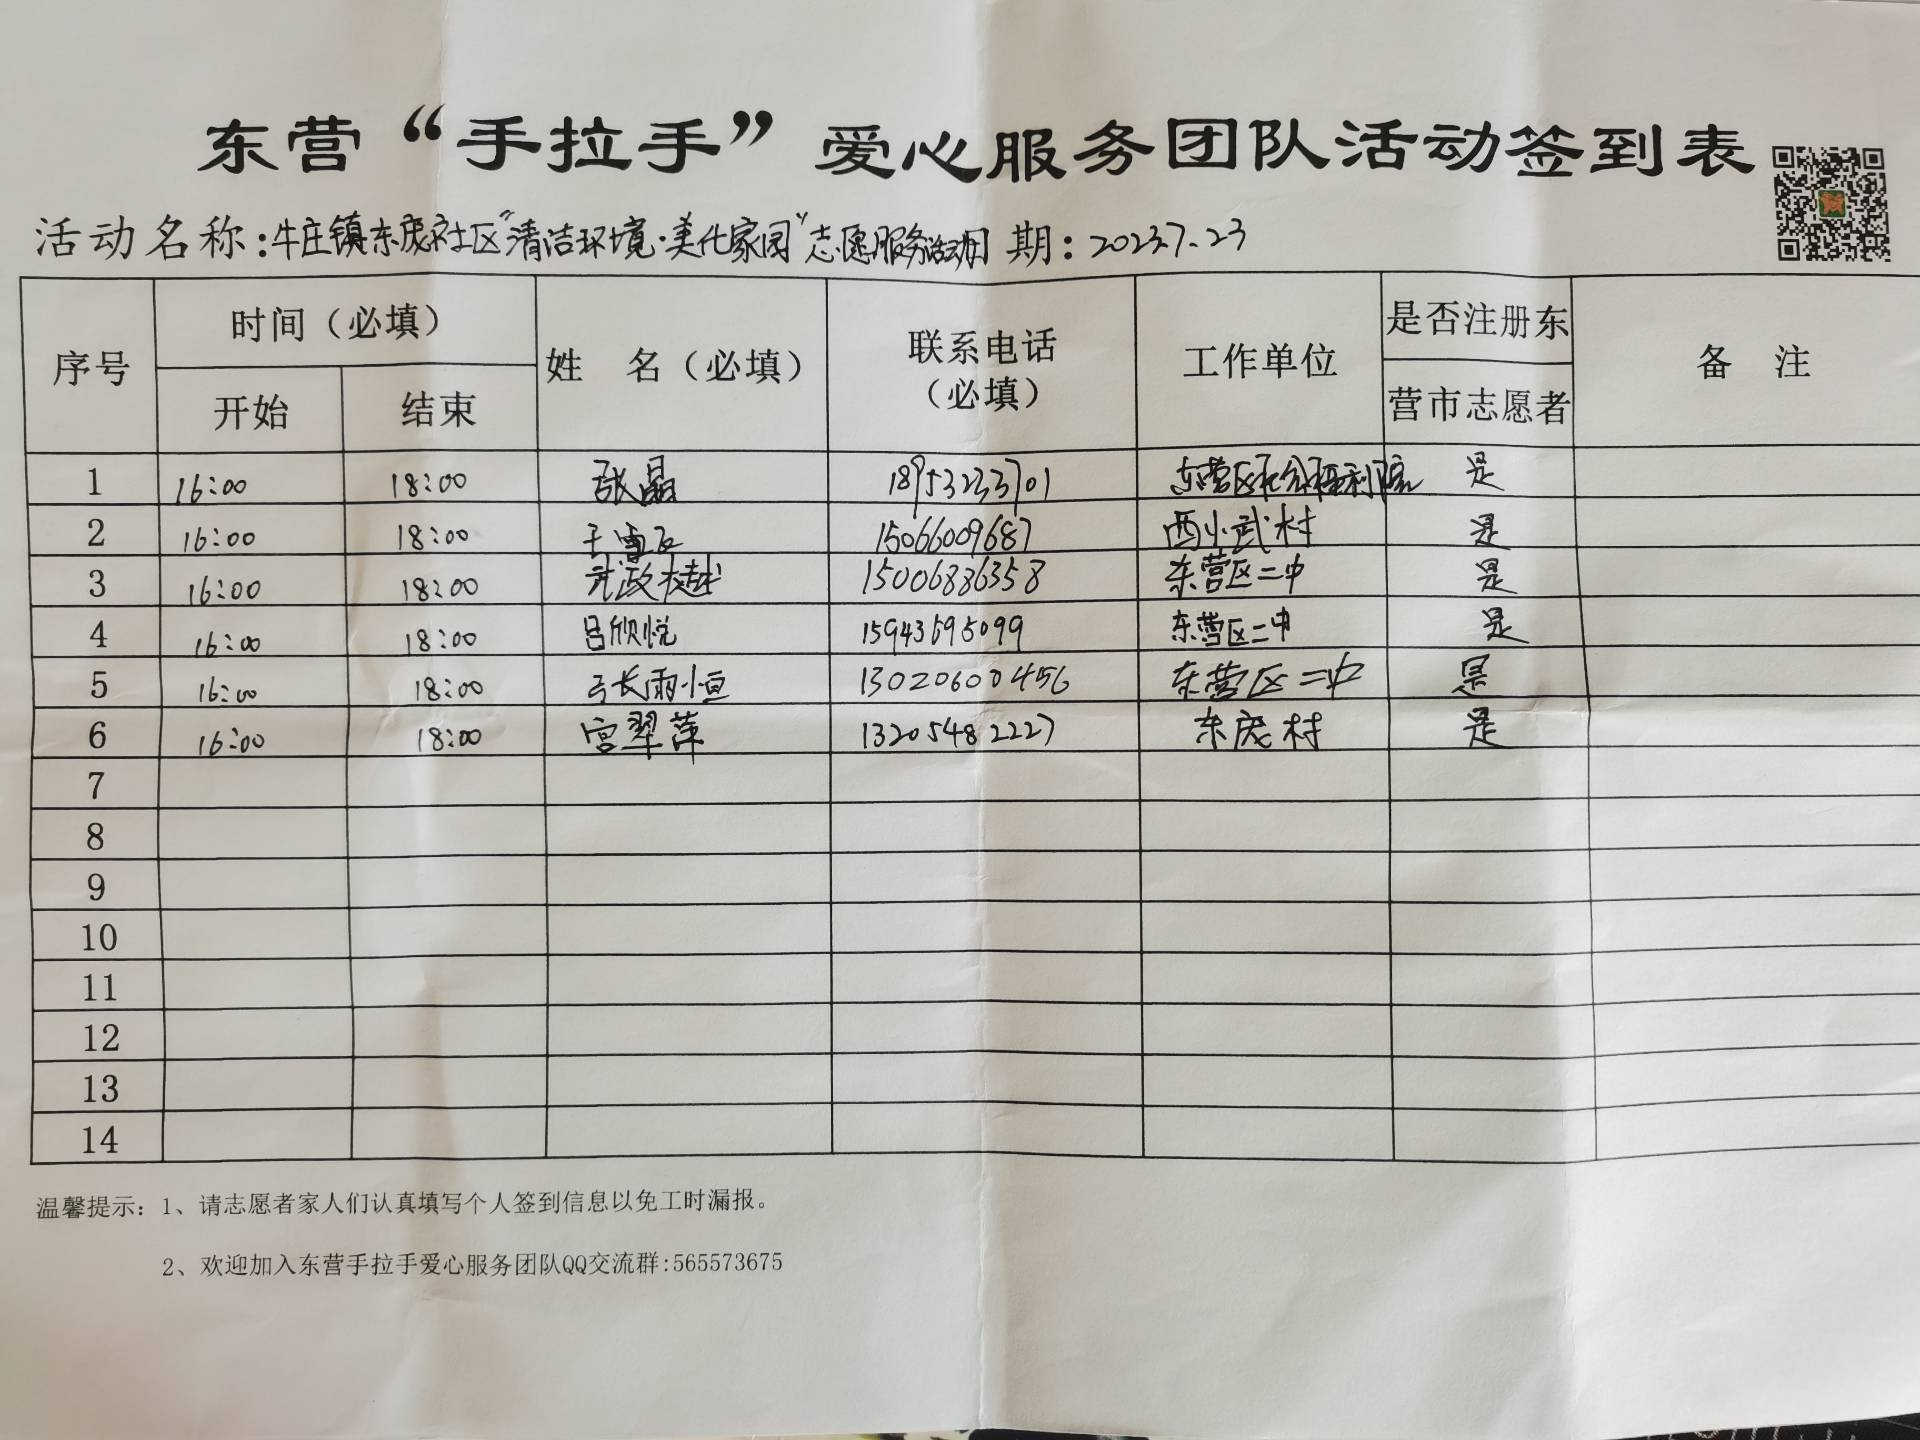 东营“手拉手”爱心服务团队活动签到表
活动名称：牛庄镇东庞社区“清洁环境·美化家园”志愿服务活动 日期：2023.7.23
序号 时间（必填） 姓 名（必填） 联系电话（必填） 工作单位 是否注册东营市志愿者 备 注
开始 结束
1 16:00 18:00 张晶 18953233701 东营区社会福利院 是
2 16:00 18:00 15066009687 西小武村 是
3 16:00 18:00 武政樾 15006836358 东营区二中 是
4 16:00 18:00 吕欣悦 15943695099 东营区二中 是
5 16:00 18:00 张雨恒 13020600456 东营区二中 是
6 16:00 18:00 宫翠萍 13205482227 东庞村 是
7
8
9
10
11
12
13
14
温馨提示：1、请志愿者家人们认真填写个人签到信息以免工时漏报。
2、欢迎加入东营手拉手爱心服务团队QQ交流群:565573675